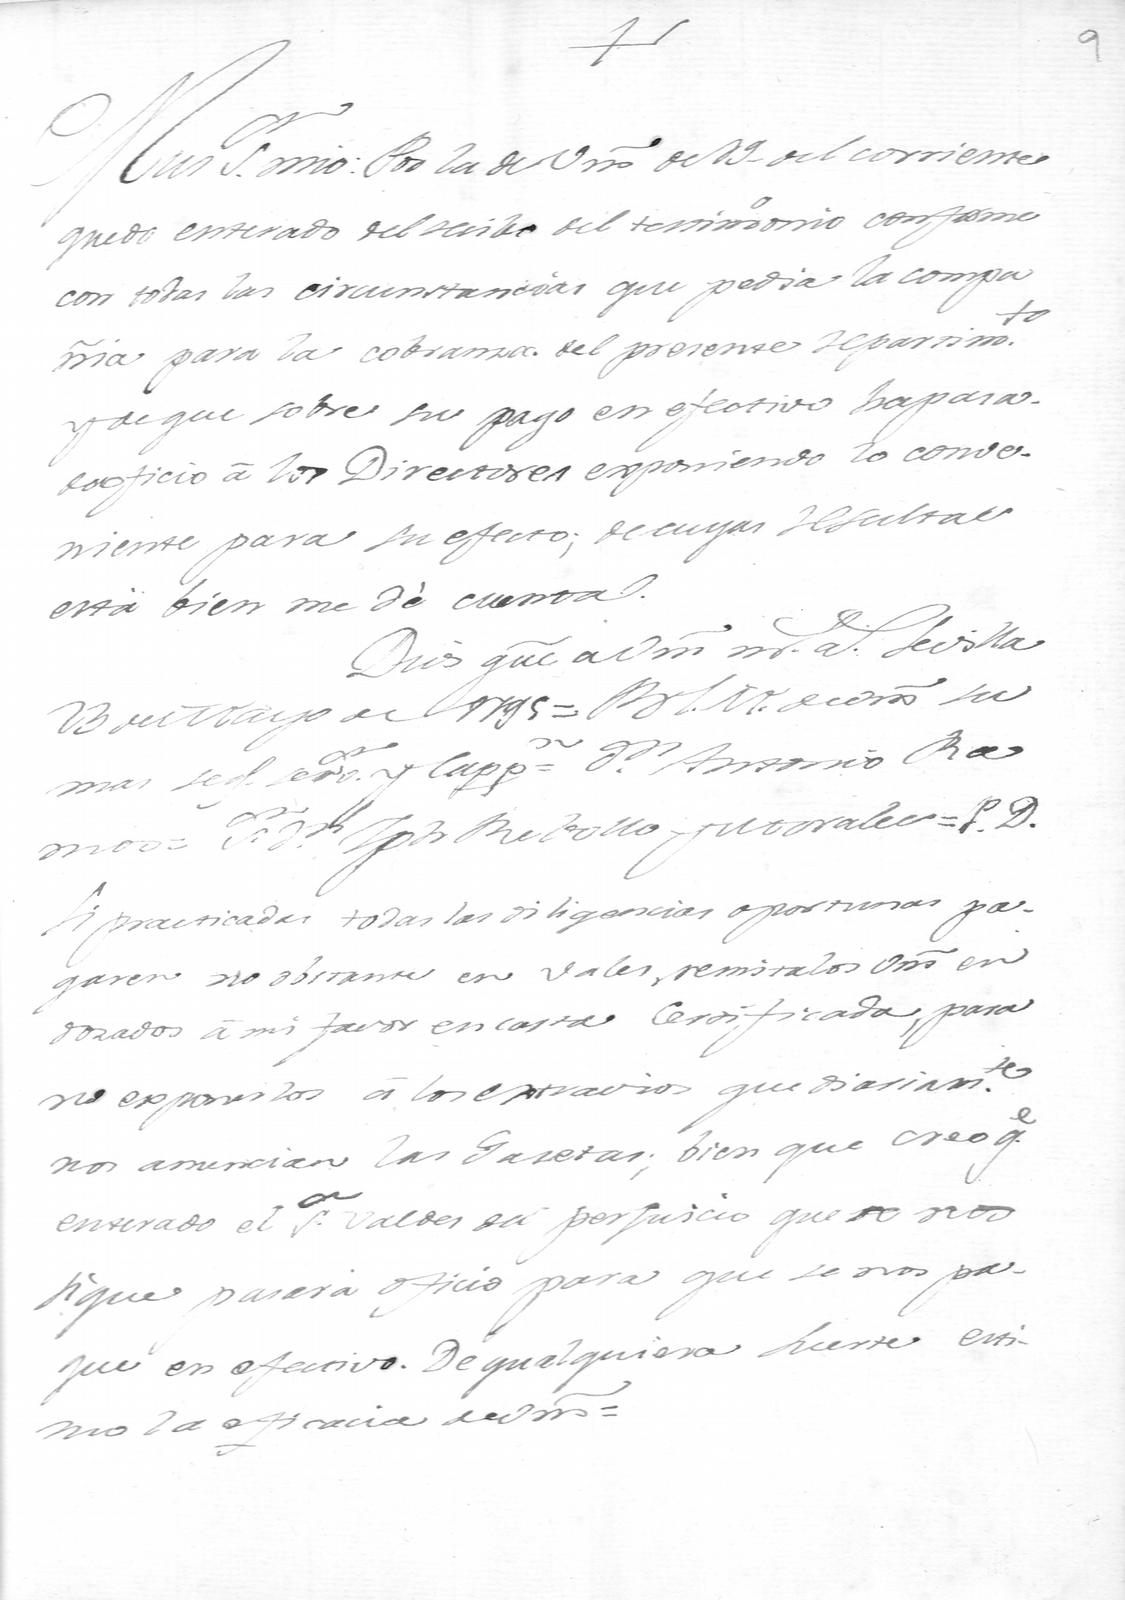 9
Mui Sr. mio: Por la de Vm̃ de 19 del corriente
quedo enterado del recibo del testimonio conforme
con todas las circunstancias que pedia la compa
ñia para la cobranza del presente repartim.to
y de que sobre su pago en efectivo ha pasa-
do oficio â los Directores exponiendo lo conve-
niente para su efecto; de cuyas resultas
està bien me dè cuenta.
Dios gũe a Vm̃ m.s a.s Sevilla
23 de Mayo de 1795= B. l. M. de Vm̃ su
mas seg. serv.or y Capp.n = D.n Antonio Ra
mos= S.r D.n Jph Rebollo y Morales= P. D.
Si practicadas todas las diligencias oportunas pa-
garen no obstante en vales, remitalos Vm̃ en
dozados â mi favor en carta Certificada, para
no exponerlos â los extravios que diariam.te
nos anuncian las Gasetas; bien que creo q.e
enterado el S.or Valdes del perjuicio que se nos
sigue pasarà oficio para que se nos pa-
gue en efectivo. De qualquiera suerte esti-
mo la eficacia de Vm̃=